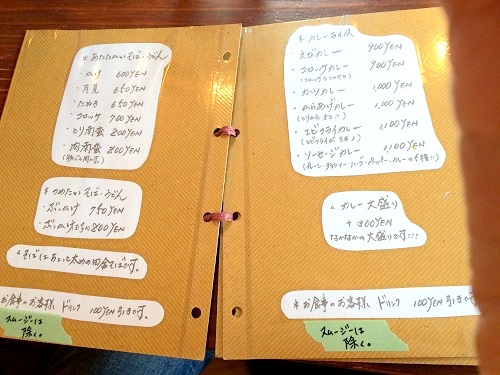 * あたたかいそば・うどん
・かけ 600YEN
・月見 650YEN
・たぬき 650YEN
・コロッケ 700YEN
・とり南蛮 800YEN
・肉南蛮 800YEN
* つめたいそば・うどん
・ぶっかけ 750YEN
・ぶっかけ 800YEN
* そばはちょっと太めの田舎そばです。
* お食事のお客様 ドリンク 100YEN引きです。
スムージーは
除く。
* カレーライス
・えびカレー 900YEN
・コロッケカレー 900YEN
・カツカレー 1,000YEN
・からあげカレー 1,000YEN
・エビフライカレー 1,100YEN
・ソーセージカレー 1,100YEN
カレー大盛り
+100YEN
なかなかの大盛りです!!!
* お食事のお客様 ドリンク 100YEN引きです。
スムージーは
除く。